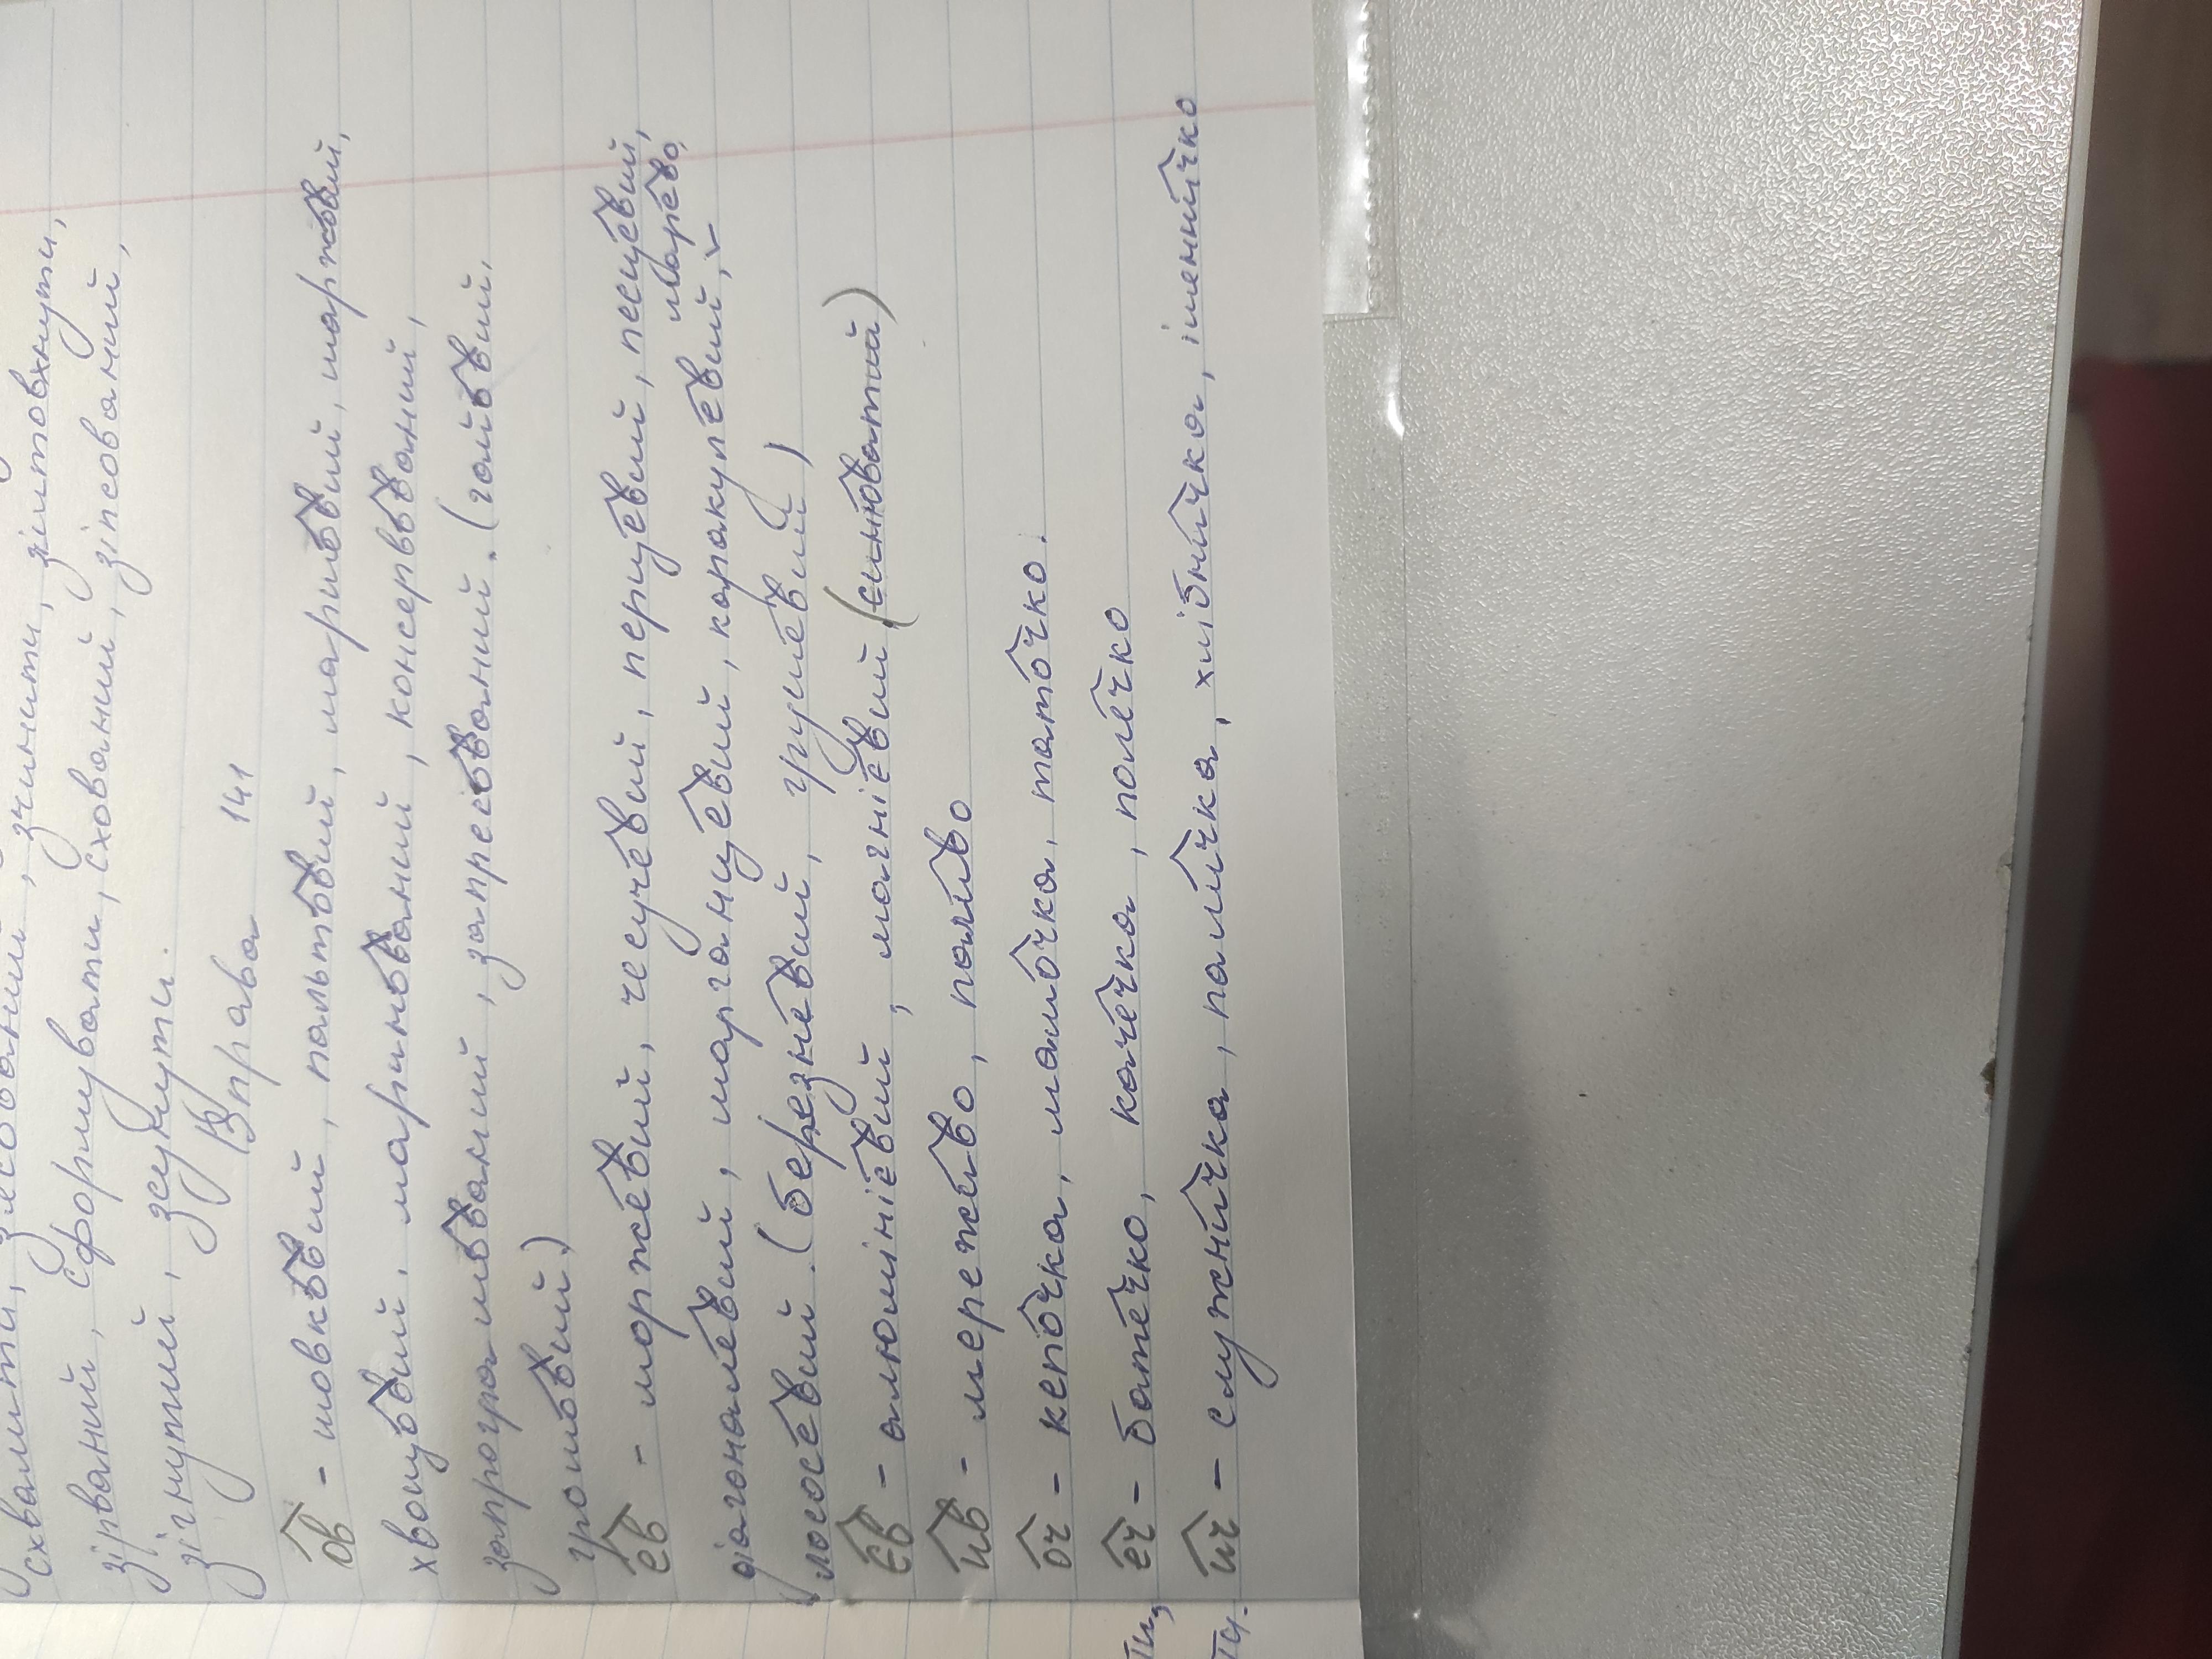 схвалити, злісований, зчинити, зіштовхнути,
зірваний, сформувати, схований, зіпсований,
зігнутий, зсунути.
Вправа 141
ов - шовковий, пальтовий, маршовий, шартовий,
хвощовий, маринований, консервований,
запрограмований, запресований. (гайовий,
грошовий)
ев - моржевий, чесучевий, перцевий, песцевий,
діагоналевий, марганцевий, каракулевий, марево,
лососевий. (березневий, грушевий)
єв - алюмінієвий, магнієвий (синюватий)
ив - мереживо, паливо
оч - кепочка, мамочка, таточко.
еч - батечко, качечка, полечко
ич - служничка, паличка, хлібничка, іменничко
ти,
ти.